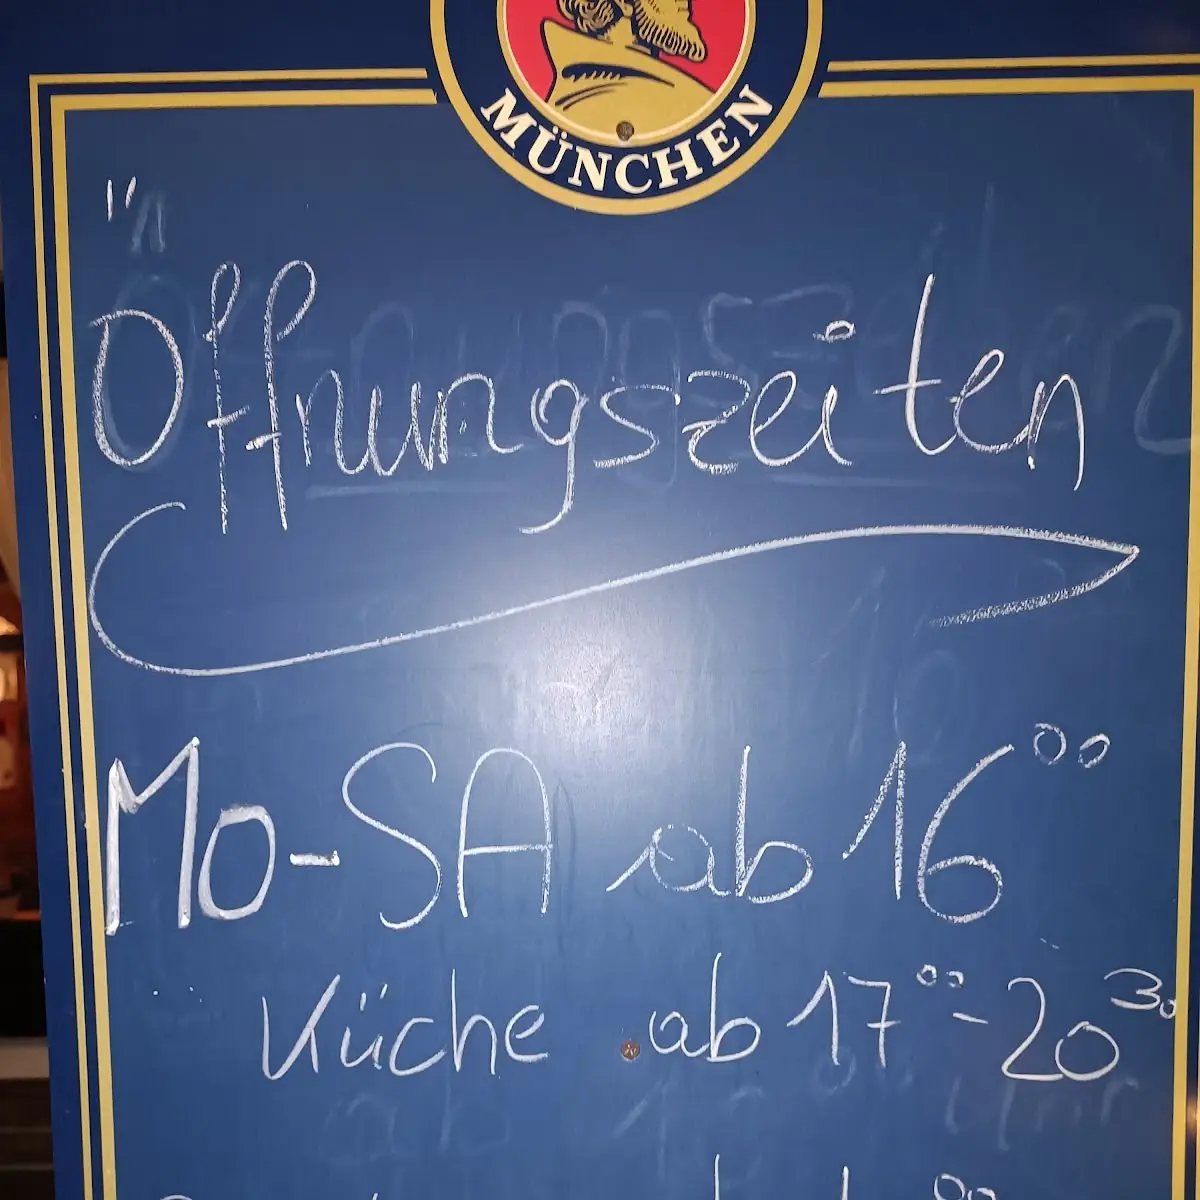 MÜNCHEN
Öffnungszeiten
Mo-SA ab 16⁰⁰
Küche ab 17⁰⁰-20³⁰